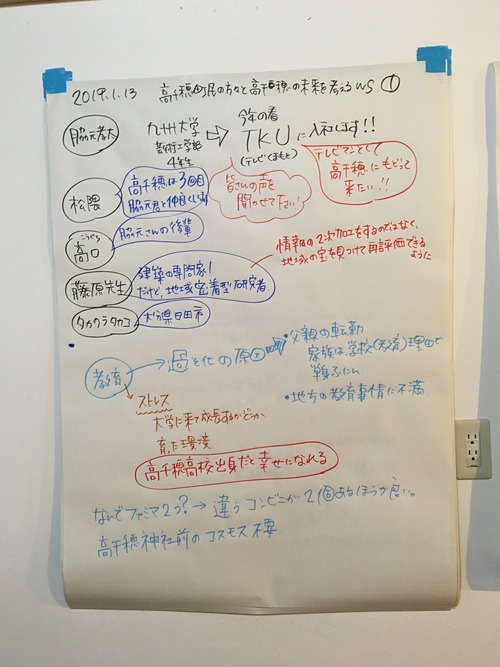 2019.1.13 高千穂町民の方々と高千穂の未来を考えるWS ①
脇元孝太
九州大学
芸術工学部
4年生
⇨
今年の春
TKUに入社します!!
(テレビくまもと)
テレビマンとして
高千穂にもどって
来たい!!
皆さんの声を
聞かせて下さい!
松隈
高千穂は3回目
脇元君と仲良くし
こうぐち
高口
脇元さんの後輩
藤原先生
建築の専門家!
だけど、地域密着型研究者
情報の2次加工をするのではなく、
地域の宝を見つけて再評価できる
ように
タカクラタカコ
大分県日田市
教育 → 過そ化の原因
・父親の転勤
家族は、学校(教育)理由で
・地方の教育事情に不満
ストレス
大学に来て成長するかどうか
育った環境
高千穂高校出身だと幸せになれる
なんでファミマ2つ?→違うコンビニが2個あるほうが良い。
高千穂神社前のコスモス不要